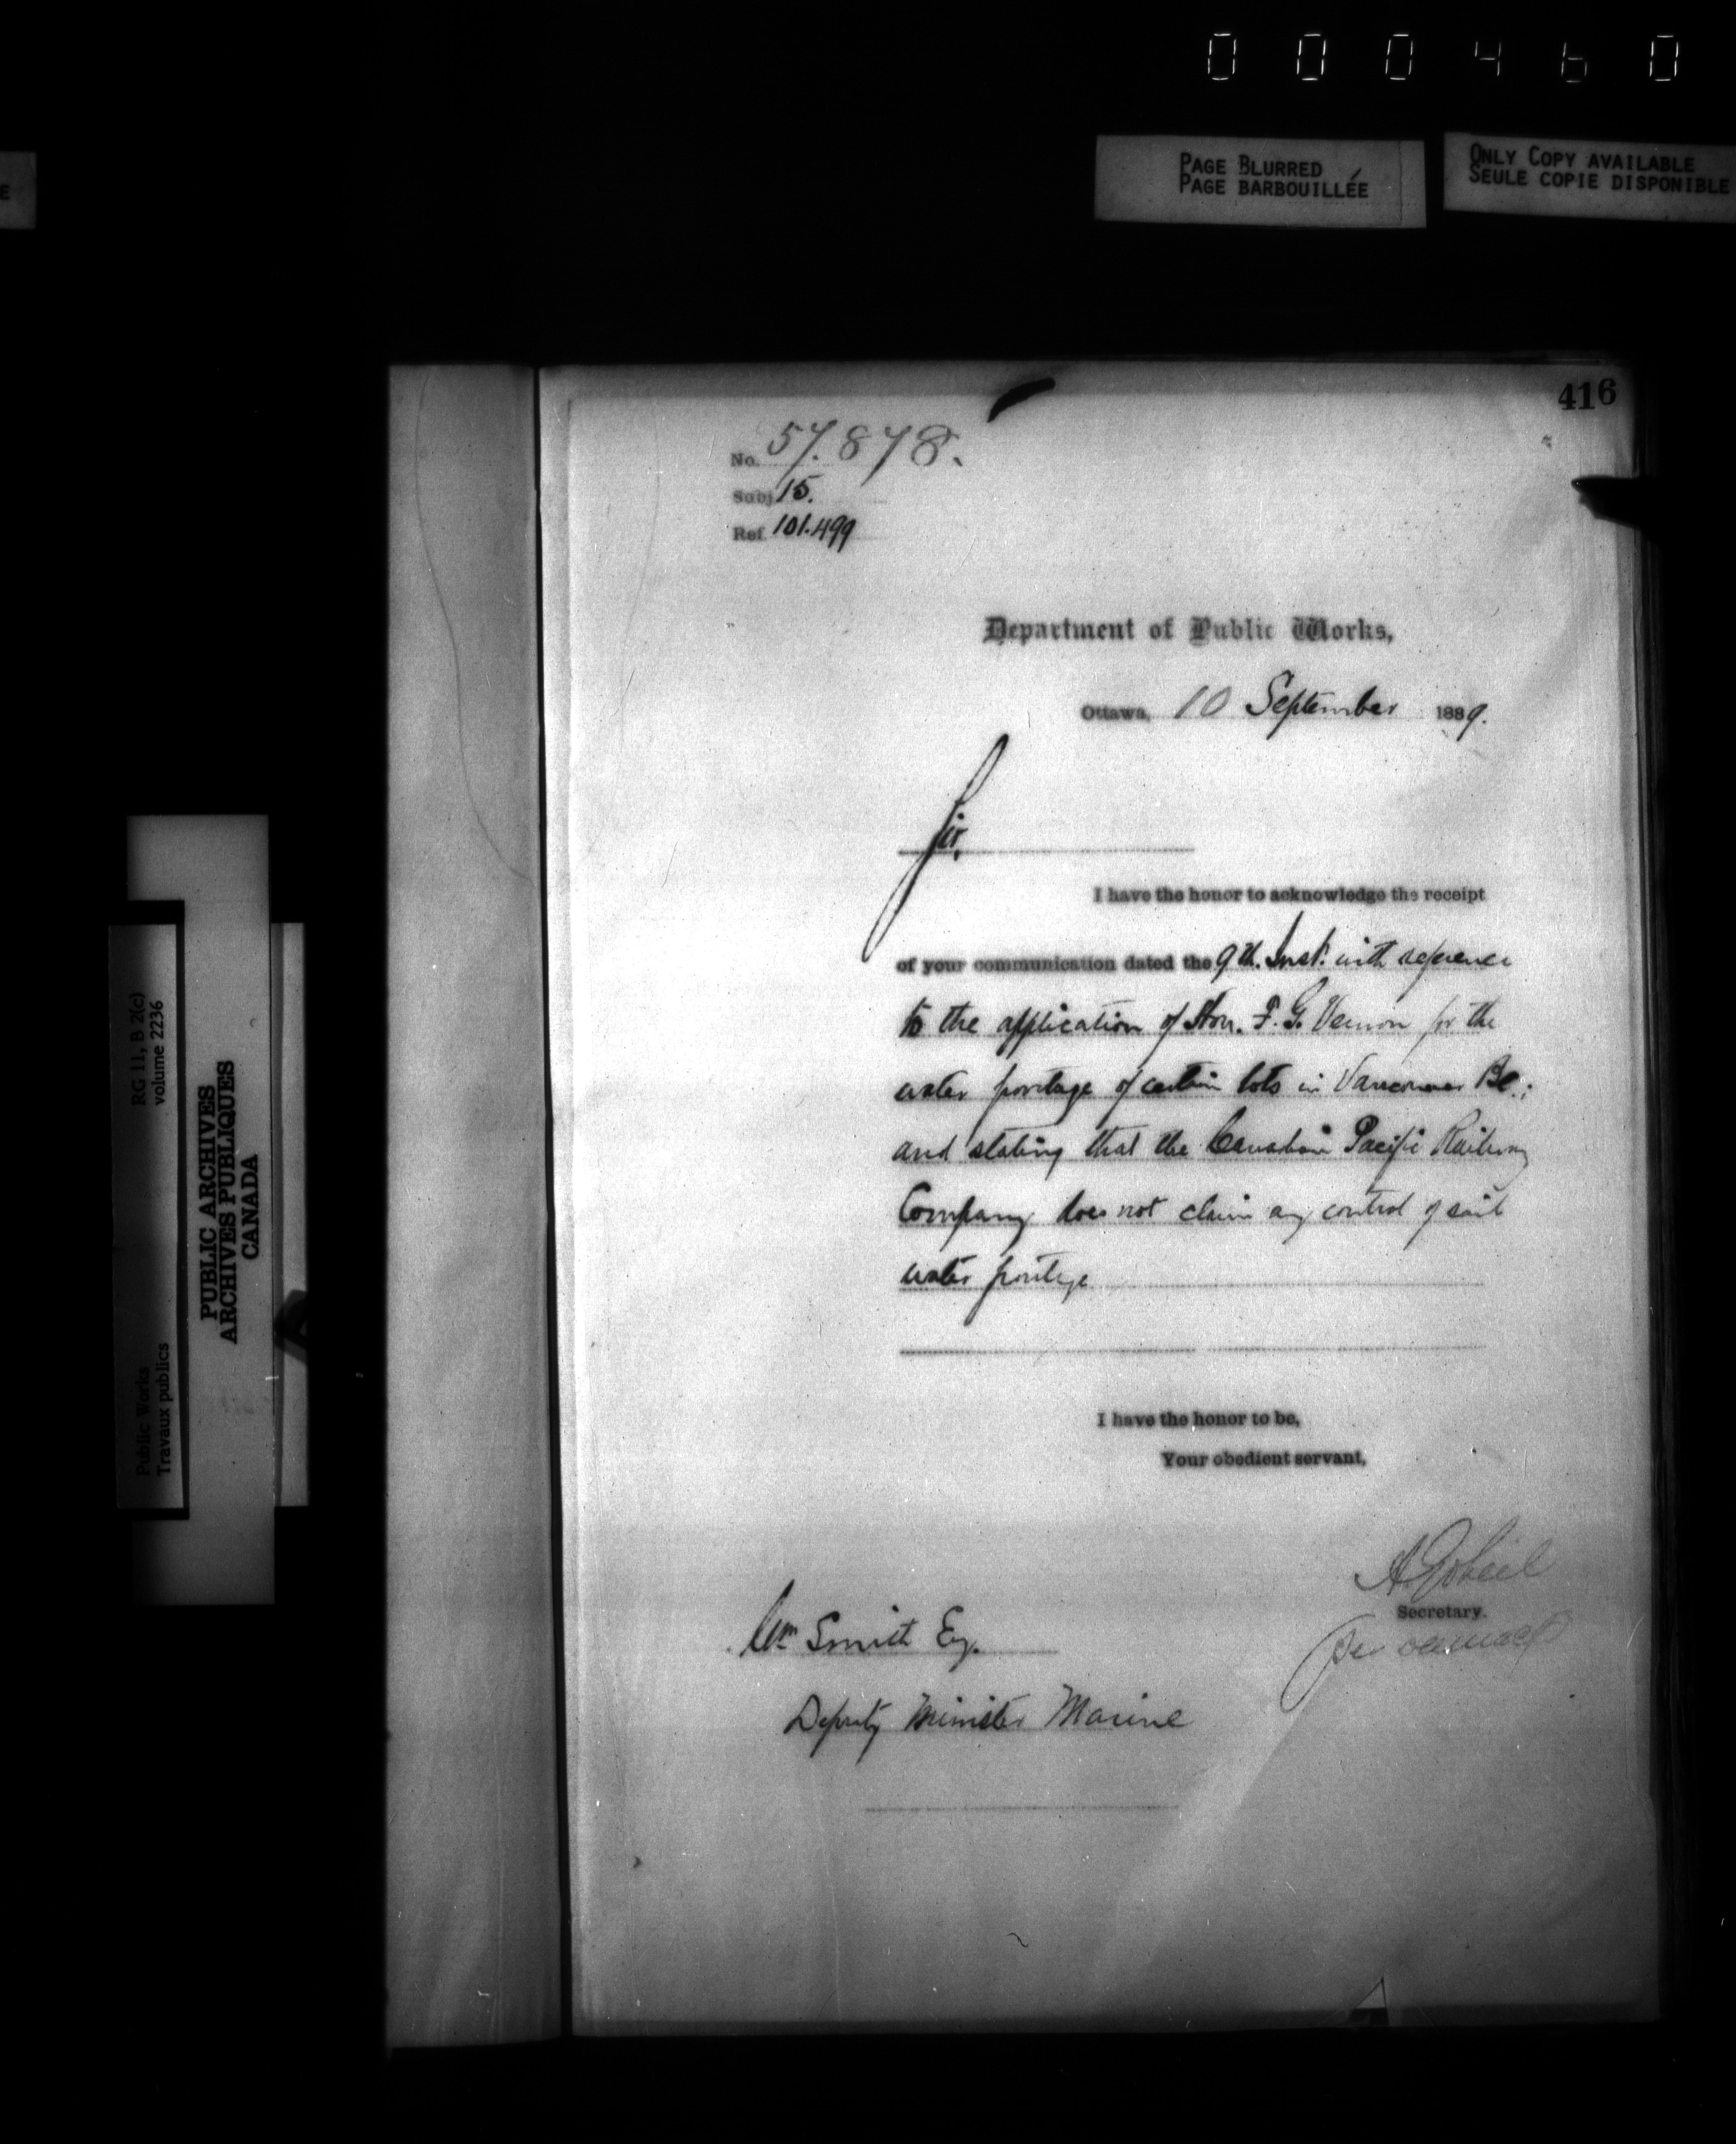 000460
PAGE BLURRED
PAGE BARBOUILLÉE
ONLY COPY AVAILABLE
SEULE COPIE DISPONIBLE
E
416
No. 57.878.
Subj 15.
Ref. 101.499
Department of Public Works,
Ottawa, 10 September 1889.
Sir,
I have the honor to acknowledge the receipt
of your communication dated the 9th. Inst. with reference
to the application of Hon. F. G. Vernon for the
water frontage of certain lots in Vancouver BC.;
and stating that the Canadian Pacific Railway
Company does not claim any control of said
water frontage
I have the honor to be,
Your obedient servant,
A Gobeil
Secretary.
per
Wm Smith Esq.
Deputy Minister Marine
RG 11, B 2(c)
volume 2236
Public Works
Travaux publics
PUBLIC ARCHIVES
ARCHIVES PUBLIQUES
CANADA